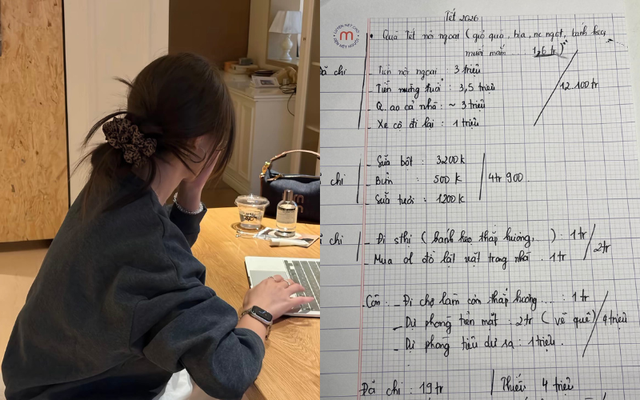 Tết 2026
• Quà Tết nội ngoại (giỏ quà, bia, nc ngọt, bánh kẹo,
1,6 tr)
Đã chi
- Tiền nội ngoại : 3 triệu
- Tiền mừng tuổi : 3,5 triệu
- Q. áo cả nhà : ~ 3 triệu
- Xe cộ đi lại : 1 triệu
12.100tr
Sữa bột : 3.200k
chi Bỉm : 500k
Sữa tươi : 1200k
4tr 900
chi - Đi sthị (bánh kẹo thắp hương, ) : 1tr
- Mua ol đồ lặt vặt trong nhà . 1tr
2tr
Còn : - Đi chợ làm cơm thắp hương ... : 1 tr
- Dự phòng tiền mặt : 2tr (về quê)
4 triệu
- Dự phòng tiêu dư sq : 1 triệu.
Đã chi : 19 tr
Thiếu 4 triệu